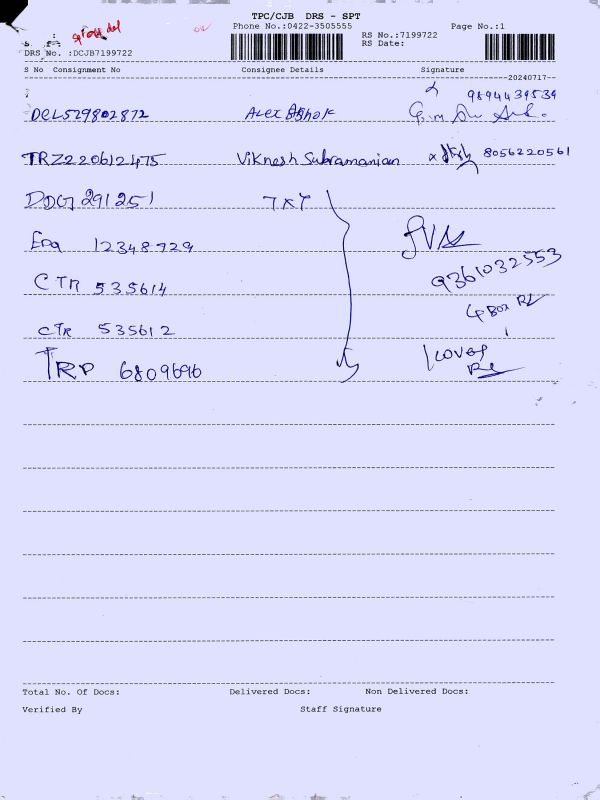 TPC/CJB DRS - SPT
Phone No.:0422-3505555 Page No.:1
RS No.:7199722
RS Date:
DRS No. :DCJB7199722
S No Consignment No Consignee Details Signature
20240717
9894439539
DEL529802872 Alex Ashok
TRZ220612475 Viknesh Subramanian 8056220561
DDG 291251 TXT
Erq 12348729
9361032553
CTR 535614
4 Box
CTR 535612
1 cover
TRP 6809696
Total No. Of Docs: Delivered Docs: Non Delivered Docs:
Verified By Staff Signature